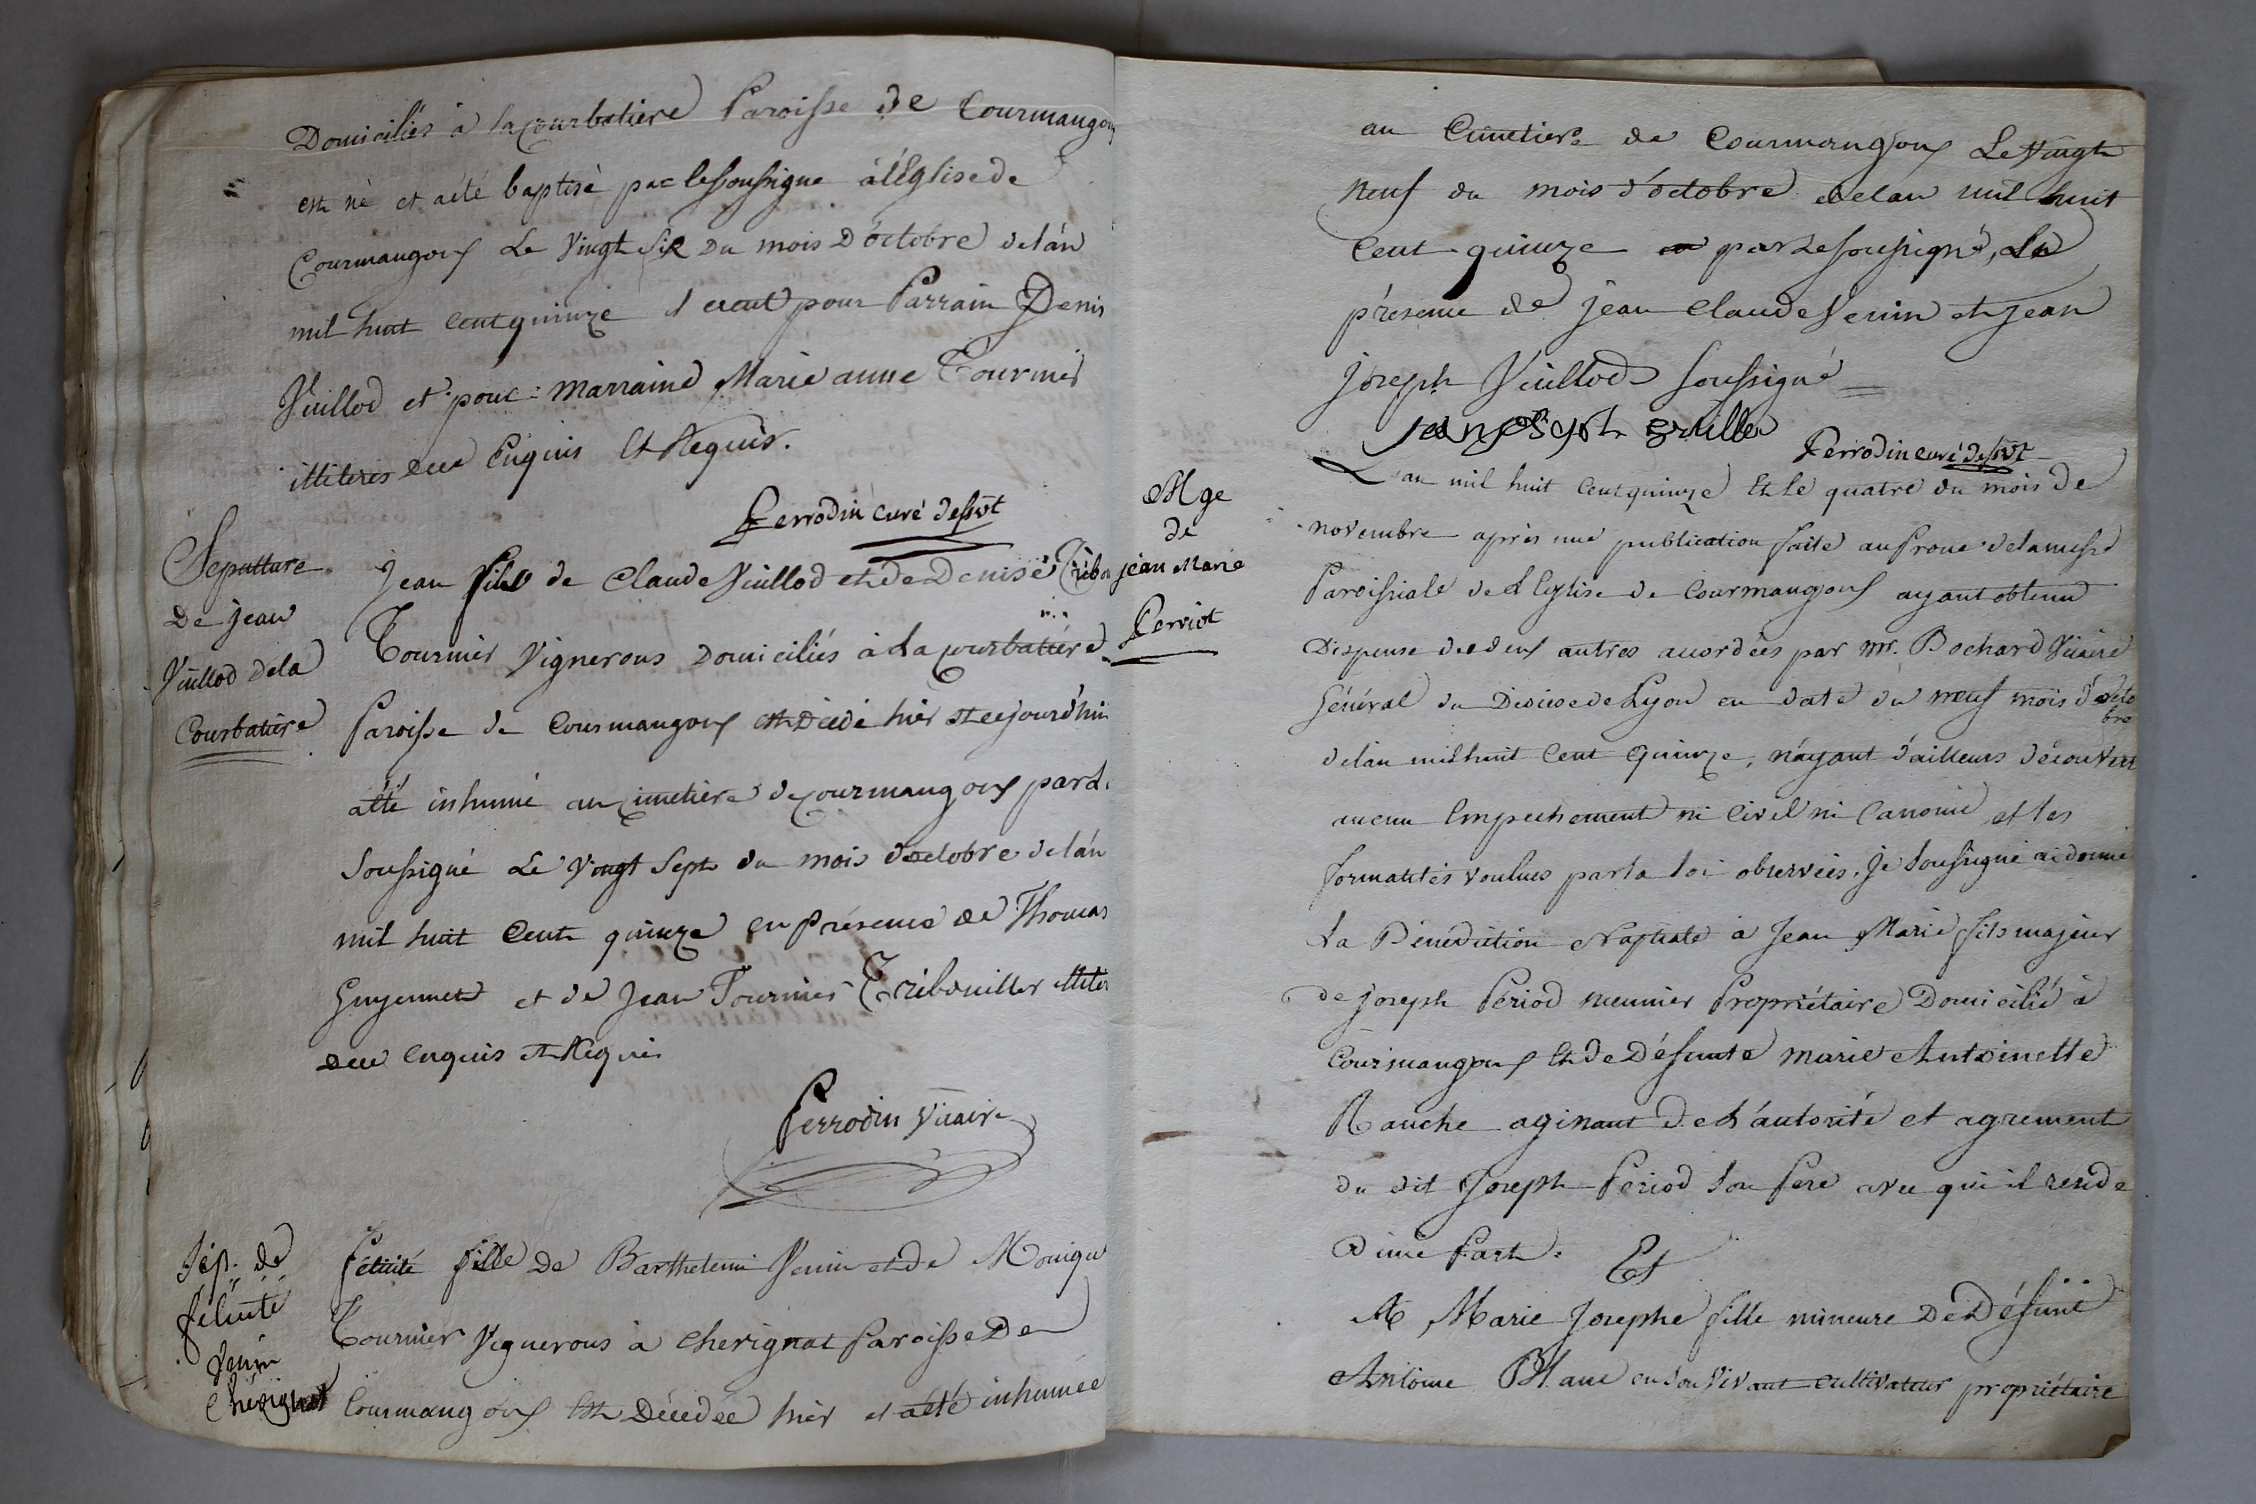 Domiciliés à la courbatiere Paroisse de Courmangoux
est né et aété baptisé par lesoussigne àl'Eglise de
Courmangoux Le Vingt six Du mois D'octobre delán
mil huit cent quinze il aeut pour Parrain Denis
Vuillod et pour marraine Marie anne Tournier
illiteres dece Enquis Et Requis.
Perrodin curé dessvt
Sepulture
De jean
Vuillod dela
Courbatiere
Jean fils de Claude Vuillod et de Denise Tribou
Tournier Vignerons Domiciliés à La courbatiere
Paroisse de Courmangoux est Décédé hier et cejourd'hui
aété inhumé au Cimetière de courmangoux par le
Soussigné Le Vingt Sept du mois doctobre delán
mil huit Cent quinze en présence de Thomas
Guyennet et de Jean Tournier Tribouiller illite
dece enquis et Requis
Perrodin Vicaire
Sép. de
félicité
Venin
Chérignat
félicité fille De Barthelemi Venin et de Monique
Tournier Vignerons à Cherignat Paroisse De
Courmangoux Est Décédée hier et aété inhumée
au Cimetiere de Courmangoux Le Vingt
Neuf du mois d'octobre delán mil huit
Cent quinze par Le soussigné, En
présence de Jean Claude Venin et jean
Joseph Vuillod Soussigné
jean josepht vuillod
Perrodin curé dessvt
Mge
de
jean Marie
Perriot
L'an mil huit cent quinze Et le quatre du mois de
novembre après une publication faite au Prone de la messe
Paroissiale de L'Eglise de Courmangoux ayant obtenu
Dispense des deux autres accordées par mr. Bochard Vicaire
Général du Diocèse de Lyon en date du neuf mois d'octo
bre
delán mil huit Cent Quinze, n'ayant d'ailleurs découvert
aucun Empechement ni Civil ni Canonic et les
formalités voulues par la loi observées. Je Soussigné ai donné
La Bénédiction Nuptiale à Jean Marie fils majeur
de joseph Périod meunier Propriétaire Domicilié à
Courmangoux Et de Défunte marie Antoinette
Rauche aginant De L'autorité et agrement
du dit Joseph Périod son Pere avec qui il reside
D'une Part. Et
A Marie Josephe fille mineure De Défunt
Antoine Blanc en son Vivant cultivateur propriétaire